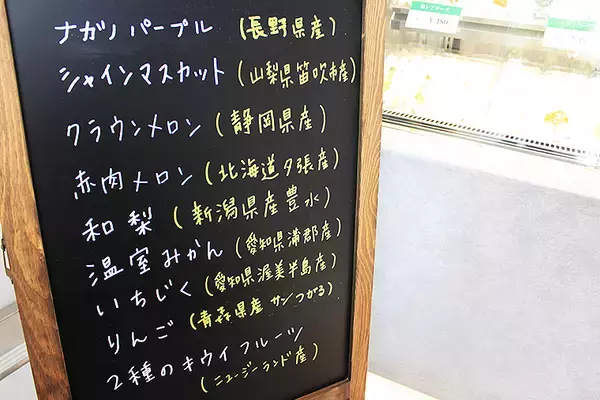 ナガノパープル (長野県産)
シャインマスカット (山梨県笛吹市産)
クラウンメロン (静岡県産)
赤肉メロン (北海道夕張産)
和梨 (新潟県産豊水)
温室みかん (愛知県蒲郡産)
いちじく (愛知県渥美半島産)
りんご (青森県産 サンつがる)
2種のキウイフルーツ
(ニュージーランド産)
¥480